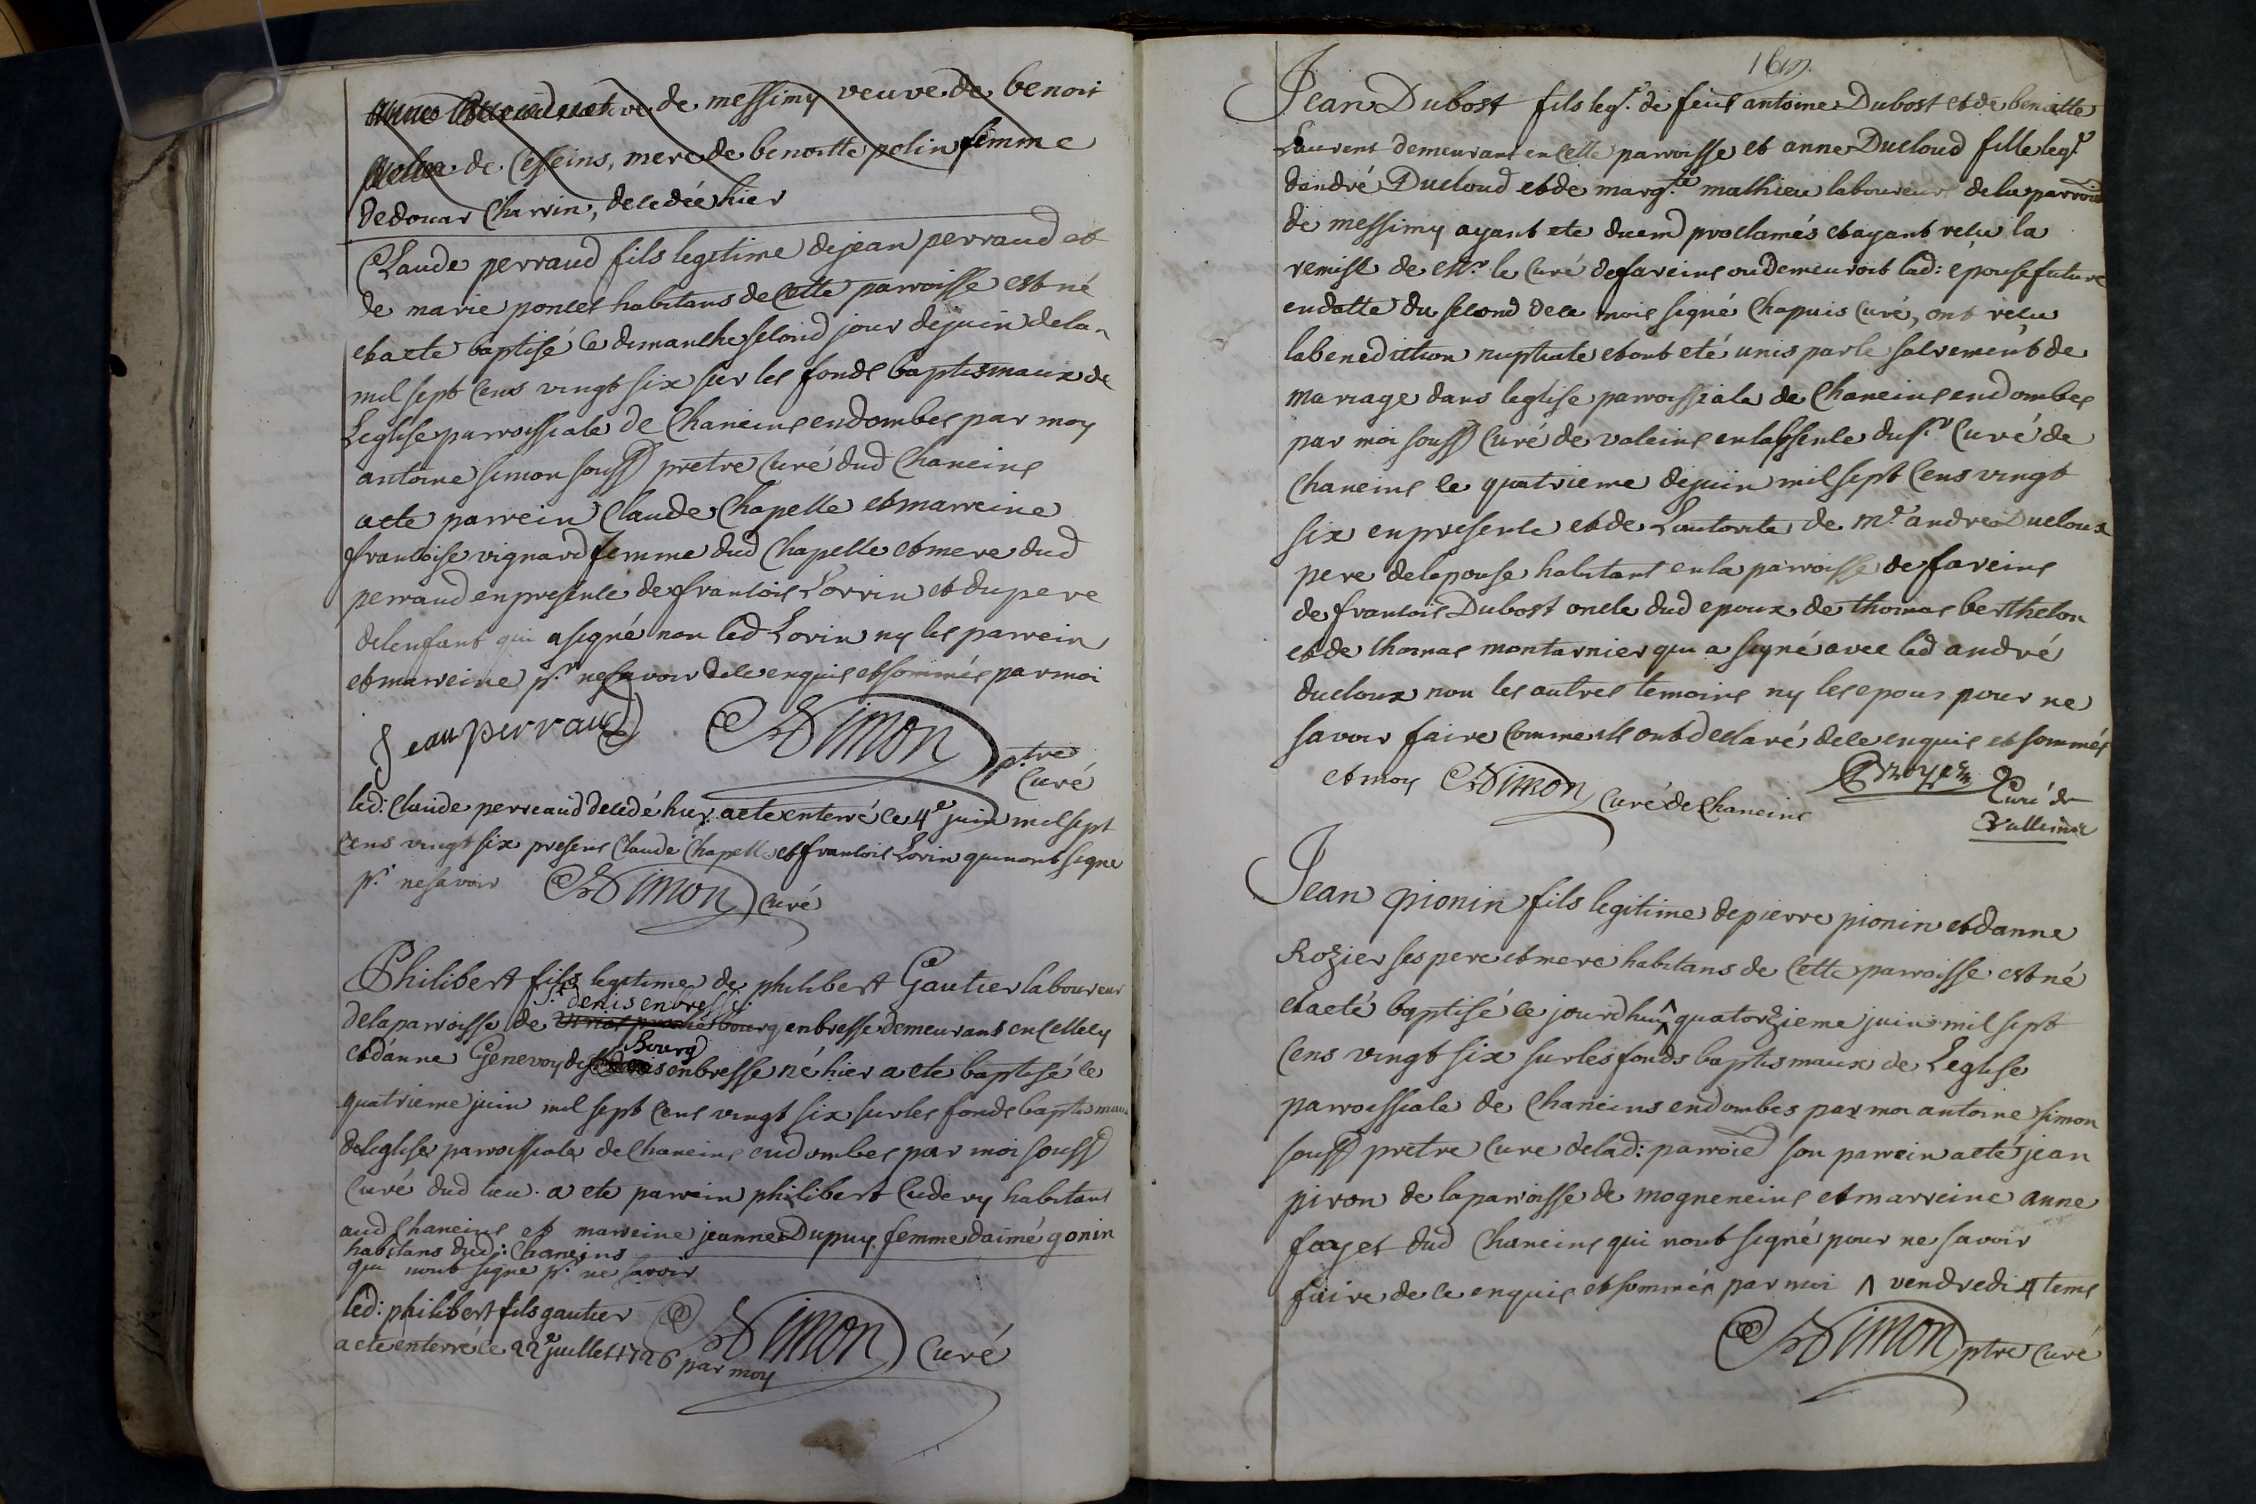 de messimy veuve de benoit
de Cesseins, mere de benoitte polin femme
dedouar Charrin, decedée hier
Claude perraud fils legitime dejean perraud et
de marie poncet habitans de Cette parroisse est né
et a ete baptisé ce dimanche second jour dejuin de lan
mil sept cens vingt six sur les fonds baptismaux de
Leglise parroissiale de Chaneins endombes par moy
antoine simon souss pretre Curé dud Chaneins
a ete parrein Claude Chapelle et marreine
francoise vignard femme dud Chapelle et mere dud
perraud enpresence de francois Lorrin et du pere
delenfant qui a signé non led Lorin ny les parrein
et marreine p.r ne savoir de ce enquis et sommés par moi
Jean perraud Simon p.tre
Curé
led: Claude perreaud decedé hier a ete enterré ce 4e juin mil sept
cens vingt six presens Claude Chapelle et francois Lorin qui nont signe
p.r ne savoir Simon Curé
Philibert fils legitime de philibert Gautier laboureur
St denis en bresse
delaparroisse de bourg enbresse demeurant en celle cy
Bourg
et danne Genevoy de enbresse né hier a ete baptisé le
quatrieme juin mil sept cens vingt six sur les fonds baptismaux
deleglise parroissiale de Chaneins endombes par moi souss
Curé dud lieu. a ete parrein philibert Cudery habitant
aud Chaneins et marreine jeanne Dupuy femme daimé gonin
habitans dud: Chaneins
qui nont signe p.r ne savoir
led: philibert fils gautier
a ete enterré ce 22e juillet 1726 par moy Simon Curé
Jean Dubost fils leg.e de feus antoine Dubost et de benoitte
Laurent demeurant en Cette parroisse et anne Ducloud fille leg.e
dandré Ducloud et de marg.te mathieu laboureurs de la parroisse
de messimy ayant ete duem proclamés et ayant recu la
remise de M.r le Curé de fareins ou demeuroit lad: epouse future
en datte du second de ce mois signé Chapuis Curé, ont recu
la benediction nuptiale et ont eté unis par le sacrement de
mariage dans leglise parroissiale de Chaneins endombes
par moi souss Curé de valeins en labsence du s.r Curé de
chaneins le quatrieme dejuin mil sept cens vingt
six en presence et de Lautorite de m.e andre Ducloux
pere de lepouse habitant en la parroisse de fareins
de francois Dubost oncle dud epoux de thomas berthelon
et de thomas montarnier qui a signé avec led andré
ducloux non les autres temoins ny les epoux pour ne
savoir faire comme ils ont declaré de ce enquis et sommés
et moy Simon Curé de Chaneins Curé de
Jean pionin fils legitime de pierre pionin et danne
Rozier ses pere et mere habitans de Cette parroisse est né
et a eté baptisé ce jourdhuy ^ quatorzieme juin mil sept
cens vingt six sur les fonds baptismaux de Leglise
parroissiale de Chaneins endombes par moi antoine simon
souss pretre Cure de lad: parroisse son parrein a eté jean
piron de la parroisse de mogneneins et marreine anne
fayet dud Chaneins qui nont signé pour ne savoir
faire de ce enquis et sommés par moi ^ vendredi 4 tems
Simon ptre Curé